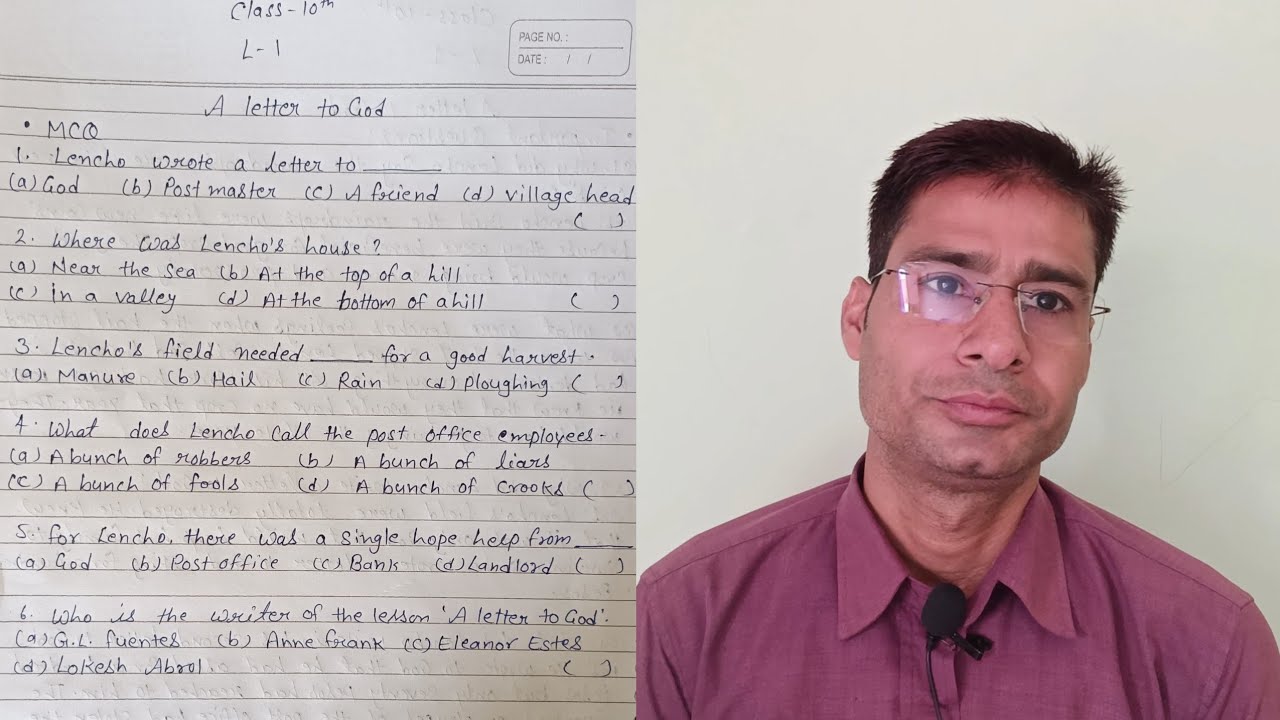 Class - 10th
L - 1
PAGE NO. :
DATE : / /
A letter to God
• MCQ
1. Lencho wrote a letter to ______
(a) God (b) Post master (c) A friend (d) village head
( )
2. Where was Lencho's house ?
(a) Near the sea (b) At the top of a hill
(c) in a valley (d) At the bottom of a hill ( )
3. Lencho's field needed ____ for a good harvest.
(a) Manure (b) Hail (c) Rain (d) Ploughing ( )
4. What does Lencho call the post office employees -
(a) A bunch of robbers (b) A bunch of liars
(c) A bunch of fools (d) A bunch of crooks ( )
5. for Lencho, there was a single hope help from ____
(a) God (b) Post office (c) Bank (d) Landlord ( )
6. Who is the writer of the lesson 'A letter to God'.
(a) G.L. fuentes (b) Anne frank (c) Eleanor Estes
(d) Lokesh Abrol ( )